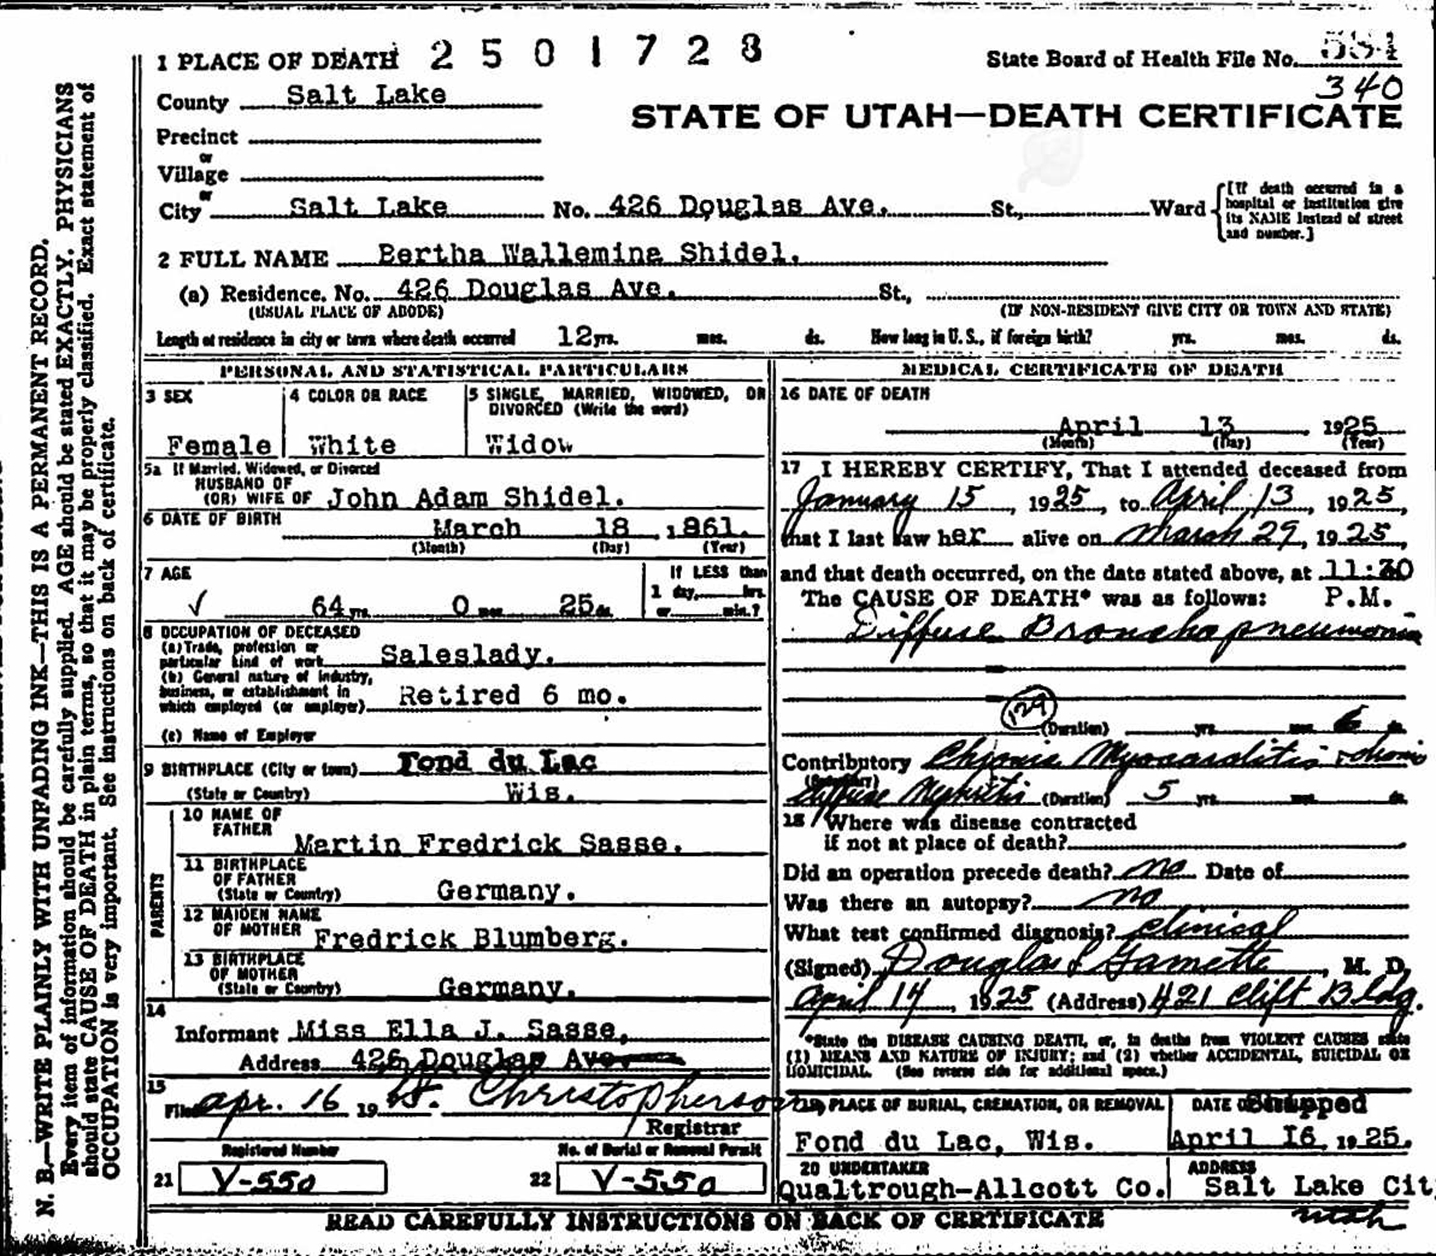 1 PLACE OF DEATH 2501728
State Board of Health File No. 584
340
County Salt Lake
STATE OF UTAH—DEATH CERTIFICATE
Precinct
or
Village
or
City Salt Lake No. 426 Douglas Ave. St., Ward
[If death occurred in a
hospital or institution give
its NAME instead of street
and number.]
2 FULL NAME Bertha Wallemina Shidel.
(a) Residence. No. 426 Douglas Ave. St.,
(USUAL PLACE OF ABODE) (IF NON-RESIDENT GIVE CITY OR TOWN AND STATE)
Length of residence in city or town where death occurred 12 yrs. mos. ds. How long in U. S., if foreign birth? yrs. mos. ds.
PERSONAL AND STATISTICAL PARTICULARS
3 SEX
Female
4 COLOR OR RACE
White
5 SINGLE, MARRIED, WIDOWED, OR
DIVORCED (Write the word)
Widow
5a If Married, Widowed, or Divorced
HUSBAND OF
(OR) WIFE OF John Adam Shidel.
6 DATE OF BIRTH March 18 , 1861.
(Month) (Day) (Year)
7 AGE
√ 64 yrs. 0 mos. 25 ds.
If LESS than
1 day, hrs.
or min.?
8 OCCUPATION OF DECEASED
(a) Trade, profession or
particular kind of work Saleslady.
(b) General nature of industry,
business, or establishment in
which employed (or employer) Retired 6 mo.
(c) Name of Employer
9 BIRTHPLACE (City or town) Fond du Lac
(State or Country) Wis.
PARENTS
10 NAME OF
FATHER
Martin Fredrick Sasse.
11 BIRTHPLACE
OF FATHER
(State or Country) Germany.
12 MAIDEN NAME
OF MOTHER Fredrick Blumberg.
13 BIRTHPLACE
OF MOTHER
(State or Country) Germany.
14
Informant Miss Ella J. Sasse,
Address 426 Douglas Ave.
15
Filed Apr. 16 19 Christopherson
Registrar
Registered Number
21 V-550
No. of Burial or Removal Permit
22 V-550
MEDICAL CERTIFICATE OF DEATH
16 DATE OF DEATH
April 13 , 1925
(Month) (Day) (Year)
17 I HEREBY CERTIFY, That I attended deceased from
January 15, 1925, to April 13, 1925,
that I last saw her alive on March 29, 1925,
and that death occurred, on the date stated above, at 11:30
The CAUSE OF DEATH* was as follows: P.M.
Diffuse Bronchopneumonia
129
(Duration) yrs. mos. 6 ds.
Contributory Chronic Myocarditis & chronic
(Secondary)
Diffuse Nephritis (Duration) 5 yrs. mos. ds.
18 Where was disease contracted
if not at place of death?
Did an operation precede death? no Date of
Was there an autopsy? no
What test confirmed diagnosis? clinical
(Signed) Douglas , M. D.
April 14, 1925 (Address) 421 Clift Bldg.
*State the DISEASE CAUSING DEATH, or, in deaths from VIOLENT CAUSES state
(1) MEANS AND NATURE OF INJURY; and (2) whether ACCIDENTAL, SUICIDAL OR
HOMICIDAL. (See reverse side for additional space.)
19 PLACE OF BURIAL, CREMATION, OR REMOVAL
Fond du Lac, Wis.
DATE OF Shipped
April 16, 1925.
20 UNDERTAKER
Qualtrough-Allcott Co.
ADDRESS
Salt Lake Cit
Utah
READ CAREFULLY INSTRUCTIONS ON BACK OF CERTIFICATE
N. B.—WRITE PLAINLY WITH UNFADING INK—THIS IS A PERMANENT RECORD.
Every item of information should be carefully supplied. AGE should be stated EXACTLY. PHYSICIANS
should state CAUSE OF DEATH in plain terms, so that it may be properly classified. Exact statement of
OCCUPATION is very important. See instructions on back of certificate.